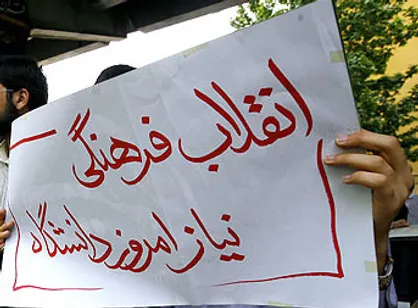 انقلاب فرهنگی
نیاز امروز دانشگاه